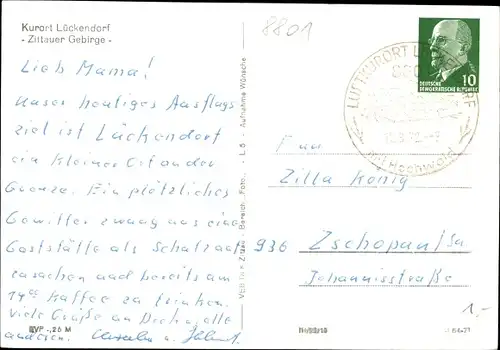 Kurort Lückendorf
- Zittauer Gebirge -
8801
Lieb Mama!
Unser heutiges Ausflugs
ziel ist Lückendorf
ein kleiner Ort an der
Grenze. Ein plötzliches
Gewitter zwang uns eine
Gaststätte als
aufzusuchen und bereits um
14 00 Kaffee zu trinken.
Viele Grüße an Dich, alle
anderen.
EVP -,26 M
VEB Foto Aufnahme Wünsche
10
DEUTSCHE
DEMOKRATISCHE REPUBLIK
LUFTKURORT LÜCKENDORF
mit Hochwald
Frau
Zilla König
936 Zschopau/Sa
Johannisstraße
1,-